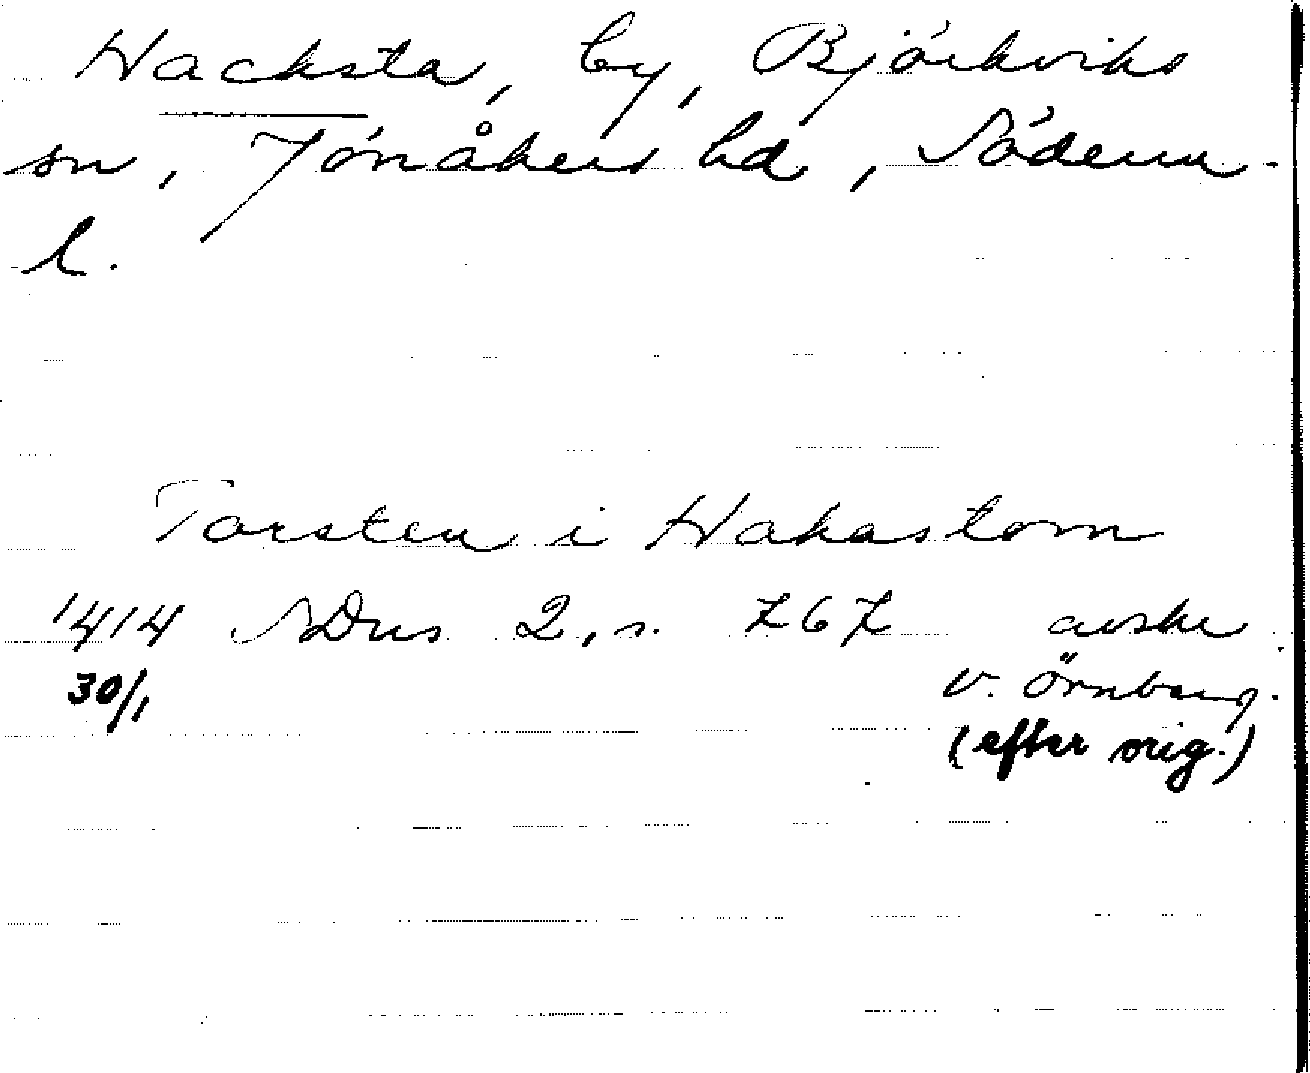 Hacksta, by, Björkviks
sn, Jönåkers hd, Söderm-
l.
Torsten i Hakastom
1414 SDns 2, s. 767 avskr
30/1 v. Örnberg.
(efter orig.)